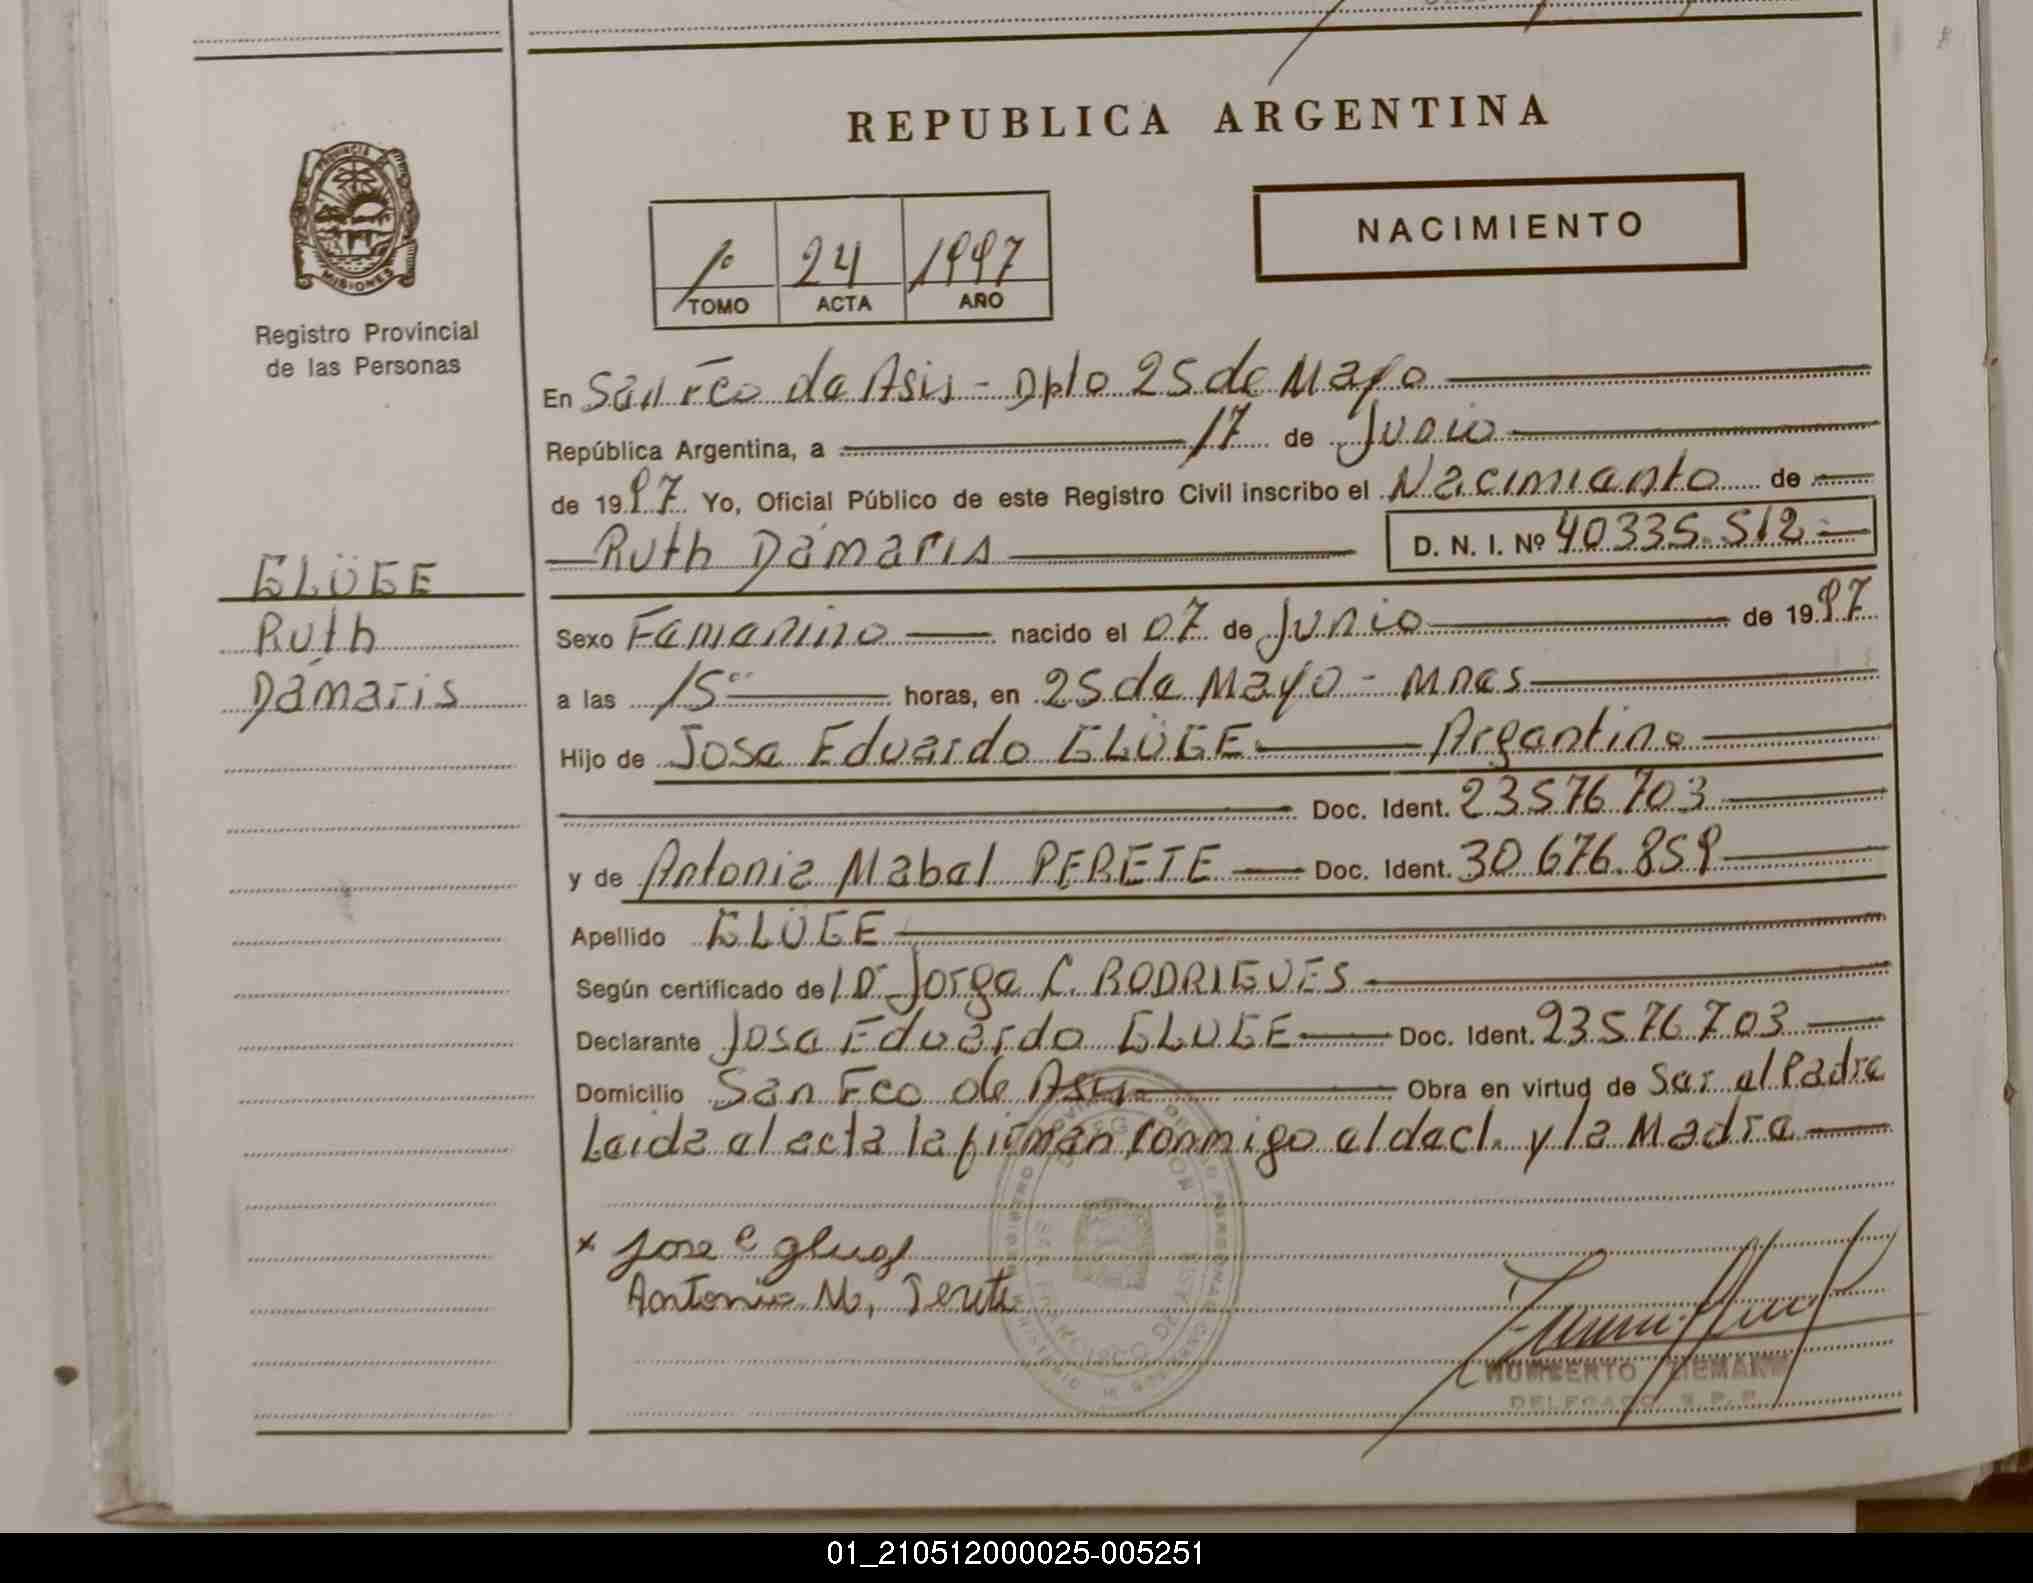 REPUBLICA ARGENTINA
PROVINCIA DE MISIONES
Registro Provincial
de las Personas
1º 24 1997
TOMO ACTA AÑO
NACIMIENTO
En San Fco de Asis - Dpto 25 de Mayo
República Argentina, a 17 de Junio
de 1997 Yo, Oficial Público de este Registro Civil inscribo el Nacimiento de
Ruth Dámaris D. N. I. Nº 40335.512
GLÜGE
Ruth
Dámaris
Sexo Femenino nacido el 07 de Junio de 1997
a las 15 horas, en 25 de Mayo - Mnes
Hijo de Jose Eduardo GLÜGE Argentino
Doc. Ident. 23576703
y de Antonia Mabel PERETE Doc. Ident. 30676.859
Apellido GLÜGE
Según certificado de l Dr Jorge C. RODRIGUES
Declarante Jose Eduardo GLUGE Doc. Ident. 23576703
Domicilio San Fco de Asis Obra en virtud de Ser el Padre
Leida el acta la firman conmigo el decl. y la Madre
x Jose E Gluge
Antonia M, Perete
HUMBERTO ZIEMANN
DELEGADO R.P.P.
01_210512000025-005251